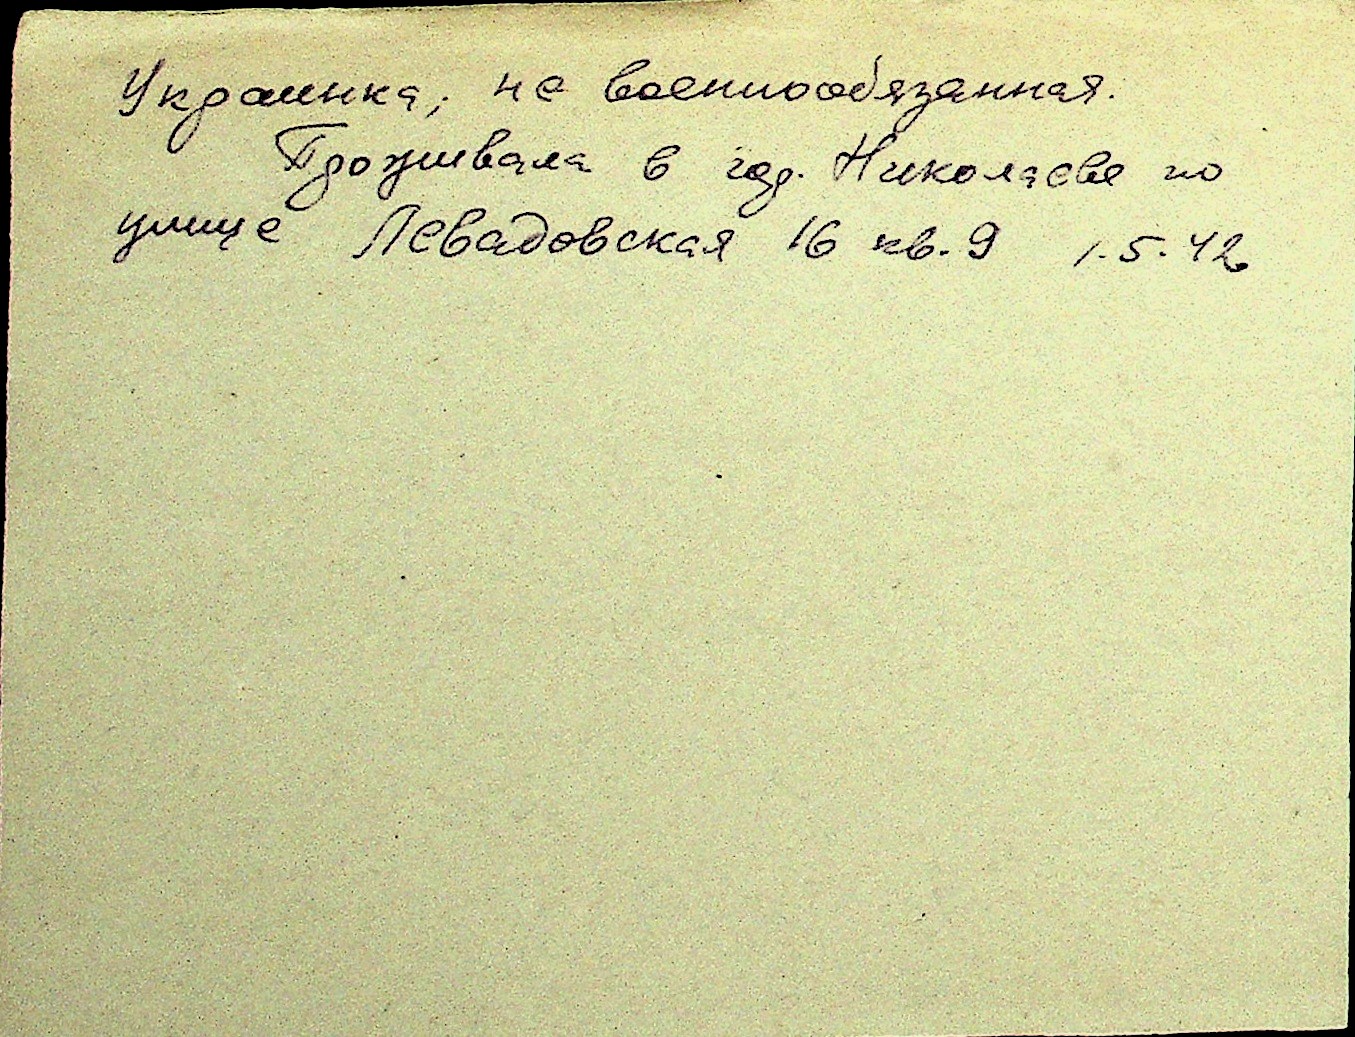 Украинка, не военнообязанная.
Проживала в гор. Николаеве по
улице Левадовская 16 кв. 9 1.5.42